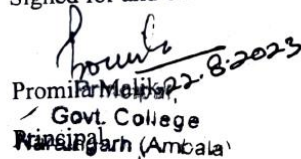 Signed for and
22.8.2023
Promila Malik
Principal,
Govt. College
Principal
Naraingarh (Ambala)